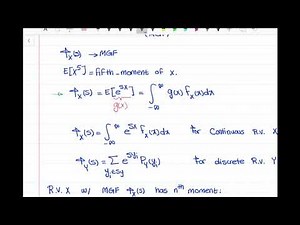 (MGF)
ϕ_X(s) → MGF
E[X^5] = fifth-moment of X.
→ ϕ_X(s) = E[e^{sX}] = ∫_{-∞}^{∞} g(x) f_X(x)dx
g(x)
ϕ_X(s) = ∫_{-∞}^{∞} e^{sx} f_X(x)dx for Continuous R.V. X
ϕ_Y(s) = Σ_{y_i∈S_Y} e^{sy_i} P_Y(y_i) for discrete R.V. Y
R.V. X w/ MGF ϕ_X(s) has nth moment: